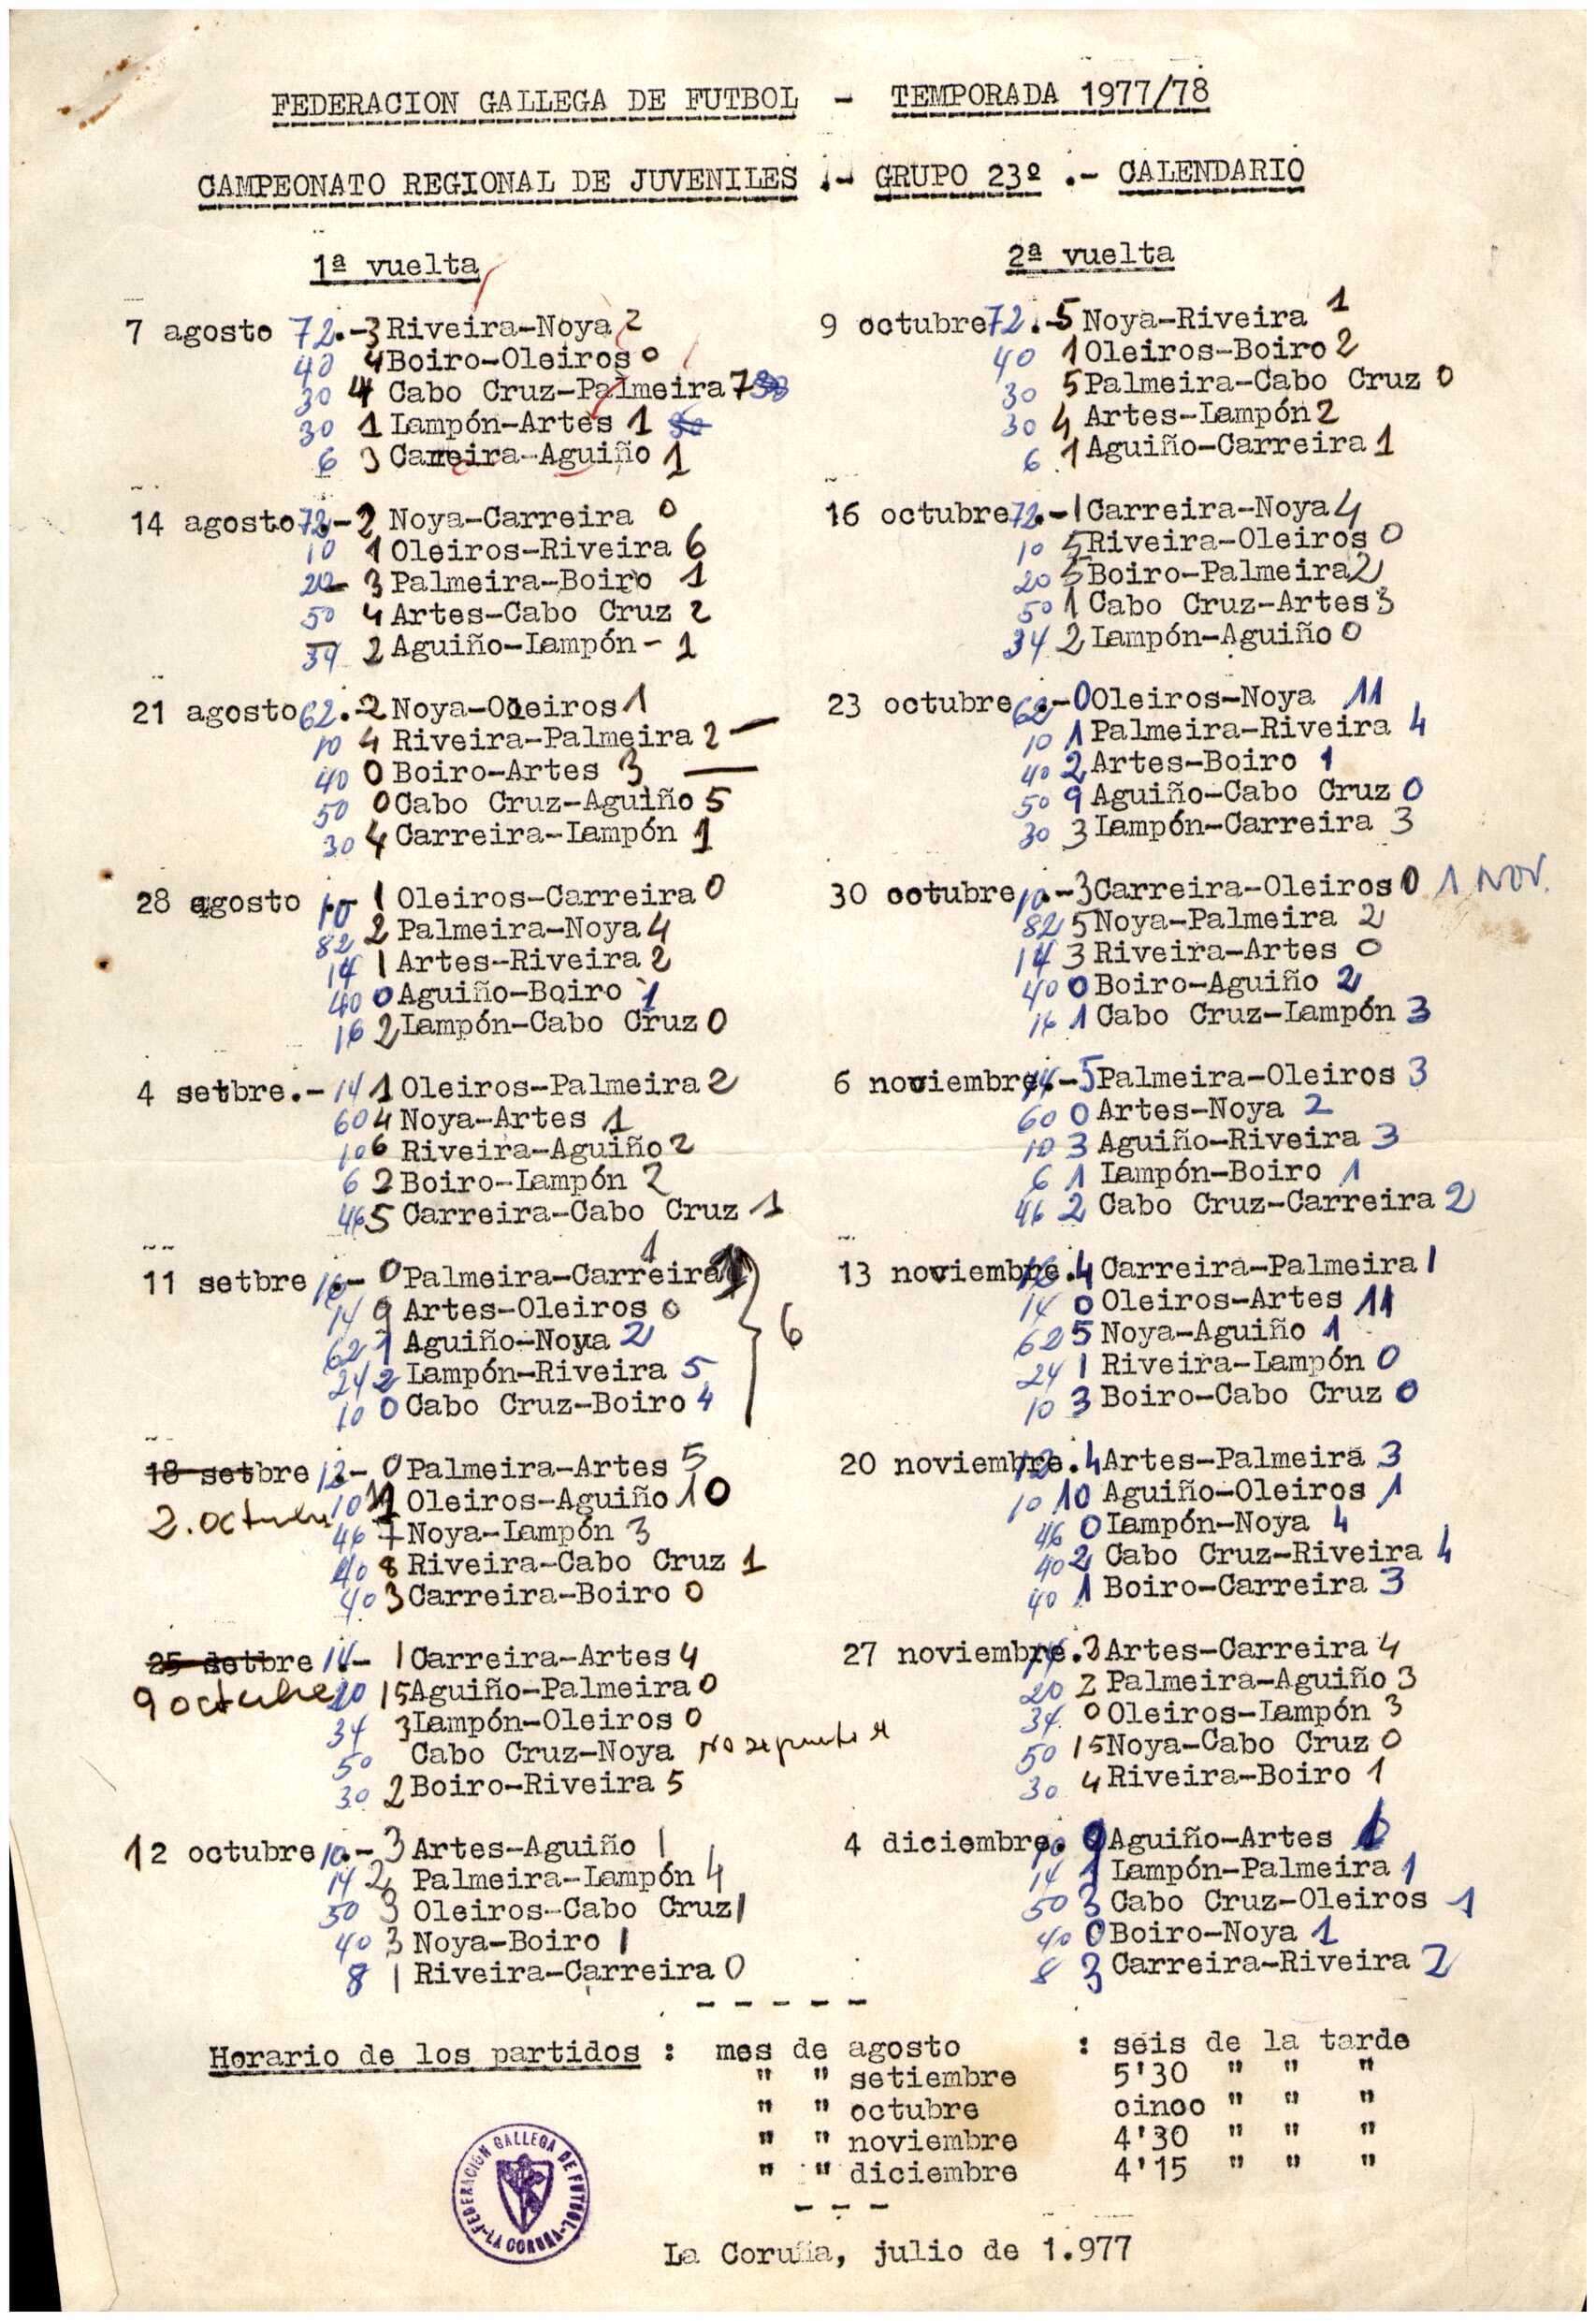 FEDERACION GALLEGA DE FUTBOL - TEMPORADA 1977/78
CAMPEONATO REGIONAL DE JUVENILES .- GRUPO 23º .- CALENDARIO
1ª vuelta
7 agosto 72.-3 Riveira-Noya 2
40 4 Boiro-Oleiros 0
30 4 Cabo Cruz-Palmeira 7
30 1 Lampón-Artes 1
6 3 Carreira-Aguiño 1
14 agosto 72.-2 Noya-Carreira 0
10 1 Oleiros-Riveira 6
20 3 Palmeira-Boiro 1
50 4 Artes-Cabo Cruz 2
34 2 Aguiño-Lampón - 1
21 agosto 62.-2 Noya-Oleiros 1
10 4 Riveira-Palmeira 2
40 0 Boiro-Artes 3
50 0 Cabo Cruz-Aguiño 5
30 4 Carreira-Lampón 1
28 agosto 10.- 1 Oleiros-Carreira 0
82 2 Palmeira-Noya 4
14 1 Artes-Riveira 2
40 0 Aguiño-Boiro 1
16 2 Lampón-Cabo Cruz 0
4 setbre.- 14 1 Oleiros-Palmeira 2
60 4 Noya-Artes 1
10 6 Riveira-Aguiño 2
6 2 Boiro-Lampón 2
46 5 Carreira-Cabo Cruz 1
11 setbre 16.- 0 Palmeira-Carreira 1
14 9 Artes-Oleiros 0
62 1 Aguiño-Noya 2
24 2 Lampón-Riveira 5
10 0 Cabo Cruz-Boiro 4
6
18 setbre 12.- 0 Palmeira-Artes 5
2. octubre
10 1 Oleiros-Aguiño 10
46 7 Noya-Lampón 3
40 8 Riveira-Cabo Cruz 1
40 3 Carreira-Boiro 0
25 setbre 14.- 1 Carreira-Artes 4
9 octubre
20 15 Aguiño-Palmeira 0
34 3 Lampón-Oleiros 0
50 Cabo Cruz-Noya no se
30 2 Boiro-Riveira 5
12 octubre 10.- 3 Artes-Aguiño 1
14 2 Palmeira-Lampón 4
50 3 Oleiros-Cabo Cruz 1
40 3 Noya-Boiro 1
8 1 Riveira-Carreira 0
2ª vuelta
9 octubre 72.-5 Noya-Riveira 1
40 1 Oleiros-Boiro 2
30 5 Palmeira-Cabo Cruz 0
30 4 Artes-Lampón 2
6 1 Aguiño-Carreira 1
16 octubre 72.-1 Carreira-Noya 4
10 5 Riveira-Oleiros 0
20 5 Boiro-Palmeira 2
50 1 Cabo Cruz-Artes 3
34 2 Lampón-Aguiño 0
23 octubre 62.-0 Oleiros-Noya 11
10 1 Palmeira-Riveira 4
40 2 Artes-Boiro 1
50 9 Aguiño-Cabo Cruz 0
30 3 Lampón-Carreira 3
30 octubre 10.-3 Carreira-Oleiros 0 1 NOV.
82 5 Noya-Palmeira 2
14 3 Riveira-Artes 0
40 0 Boiro-Aguiño 2
16 1 Cabo Cruz-Lampón 3
6 noviembre 14.-5 Palmeira-Oleiros 3
60 0 Artes-Noya 2
10 3 Aguiño-Riveira 3
6 1 Lampón-Boiro 1
46 2 Cabo Cruz-Carreira 2
13 noviembre 16. 4 Carreira-Palmeira 1
14 0 Oleiros-Artes 11
62 5 Noya-Aguiño 1
24 1 Riveira-Lampón 0
10 3 Boiro-Cabo Cruz 0
20 noviembre 12. 4 Artes-Palmeira 3
10 10 Aguiño-Oleiros 1
46 0 Lampón-Noya 4
40 2 Cabo Cruz-Riveira 4
40 1 Boiro-Carreira 3
27 noviembre 14. 3 Artes-Carreira 4
20 2 Palmeira-Aguiño 3
34 0 Oleiros-Lampón 3
50 15 Noya-Cabo Cruz 0
30 4 Riveira-Boiro 1
4 diciembre 10. Aguiño-Artes
14 1 Lampón-Palmeira 1
50 3 Cabo Cruz-Oleiros 1
40 0 Boiro-Noya 1
8 3 Carreira-Riveira 2
- - - - -
Horario de los partidos : mes de agosto : seis de la tarde
" " setiembre 5'30 " " "
" " octubre cinco " " "
" " noviembre 4'30 " " "
" " diciembre 4'15 " " "
- - -
FEDERACIÓN GALLEGA DE FUTBOL - LA CORUÑA -
La Coruña, julio de 1.977